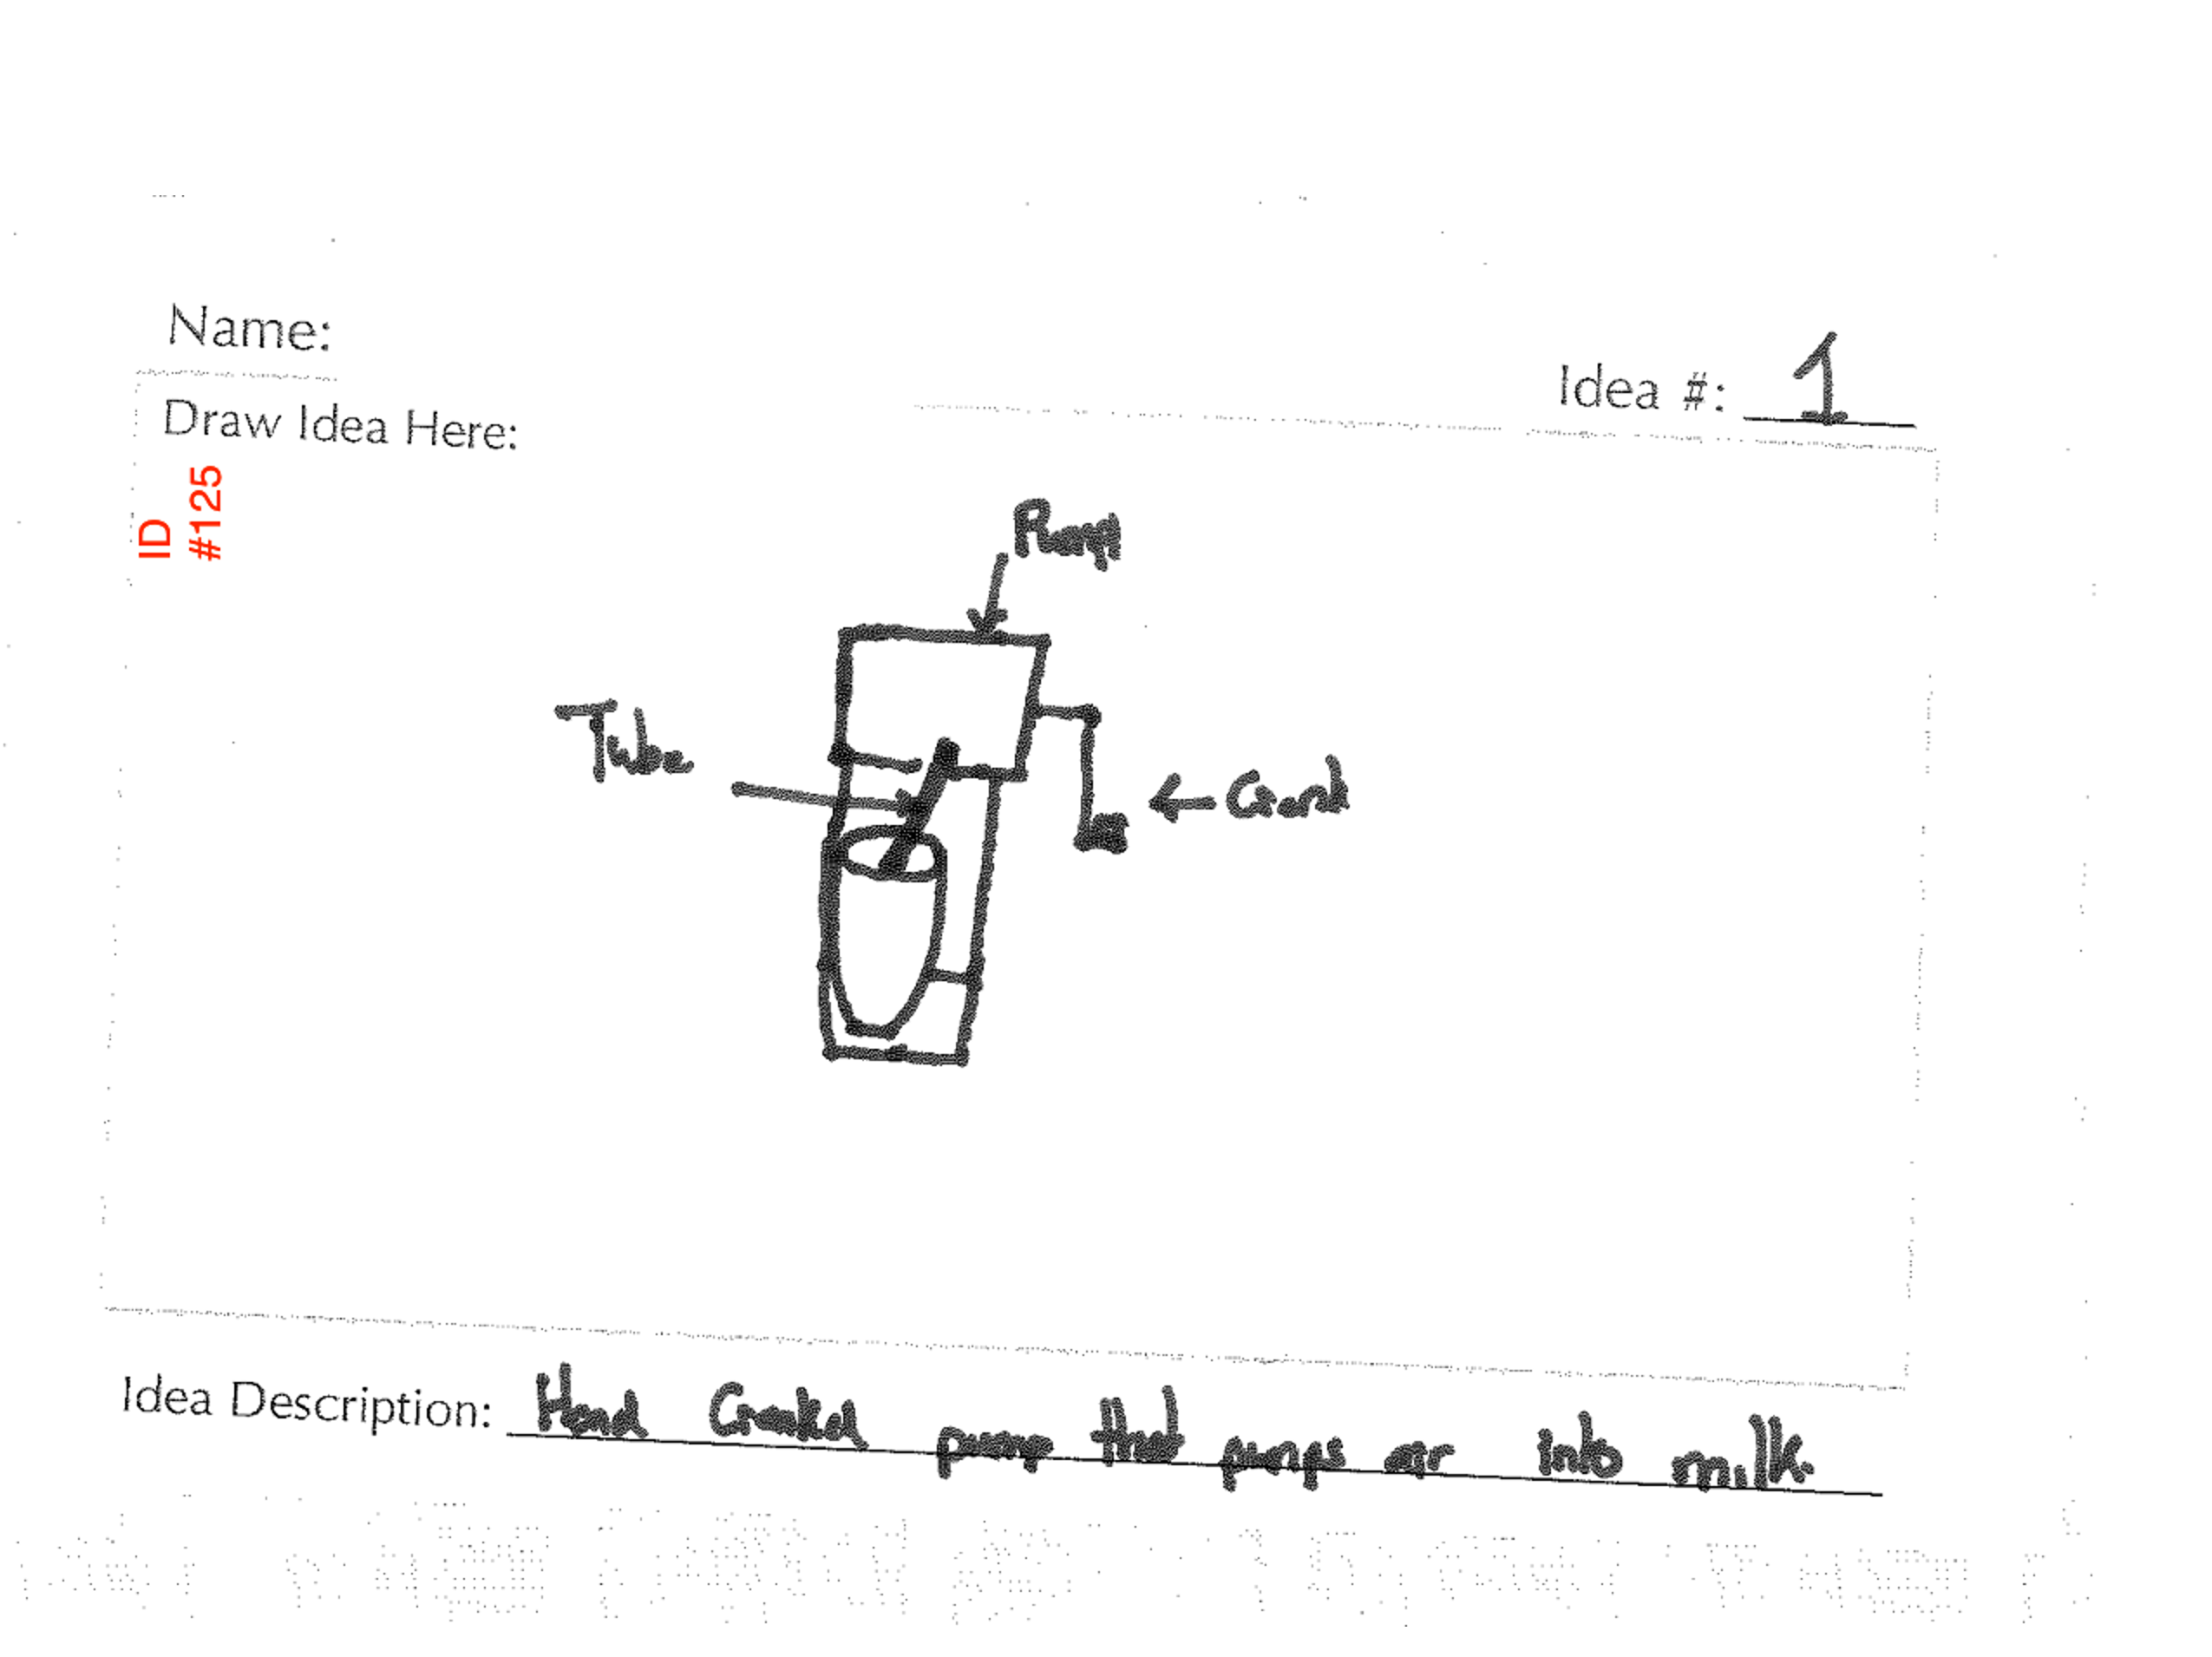 Name:
Idea #: 1
Draw Idea Here:
ID
#125
Pump
Tube
Crank
Idea Description: Hand Cranked pump that pumps air into milk.